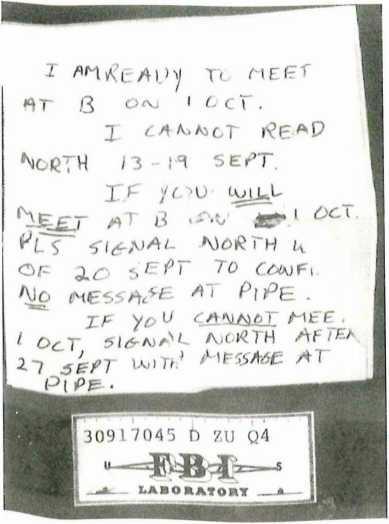 I AM READY TO MEET
AT B ON 1 OCT.
I CANNOT READ
NORTH 13-19 SEPT.
IF YOU WILL
MEET AT B ON 1 OCT.
PLS SIGNAL NORTH W
OF 20 SEPT TO CONFI
NO MESSAGE AT PIPE.
IF YOU CANNOT MEE
1 OCT, SIGNAL NORTH AFTER
27 SEPT WITH MESSAGE AT
PIPE.
30917045 D ZU Q4
U FBI S
LABORATORY